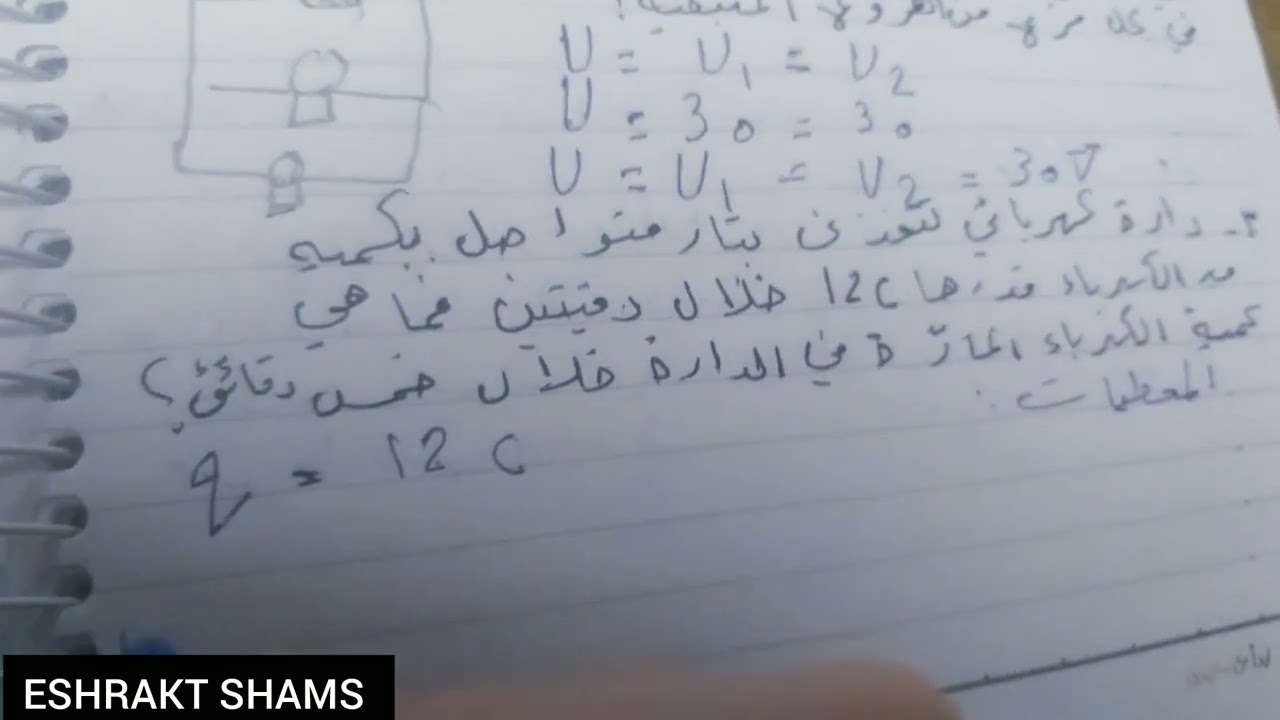 في كل من
U = U1 = U2
U = 30 = 30
U = U1 = U2 = 30V
دارة كهربائي تتغذى بتار متواصل بكميه
من الكهرباء قدرها 12C خلال دقيقتين فما هي
كمية الكهرباء المارّة في الدارة خلال خمس دقائق؟
المعطيات:
q = 12 C
ESHRAKT SHAMS